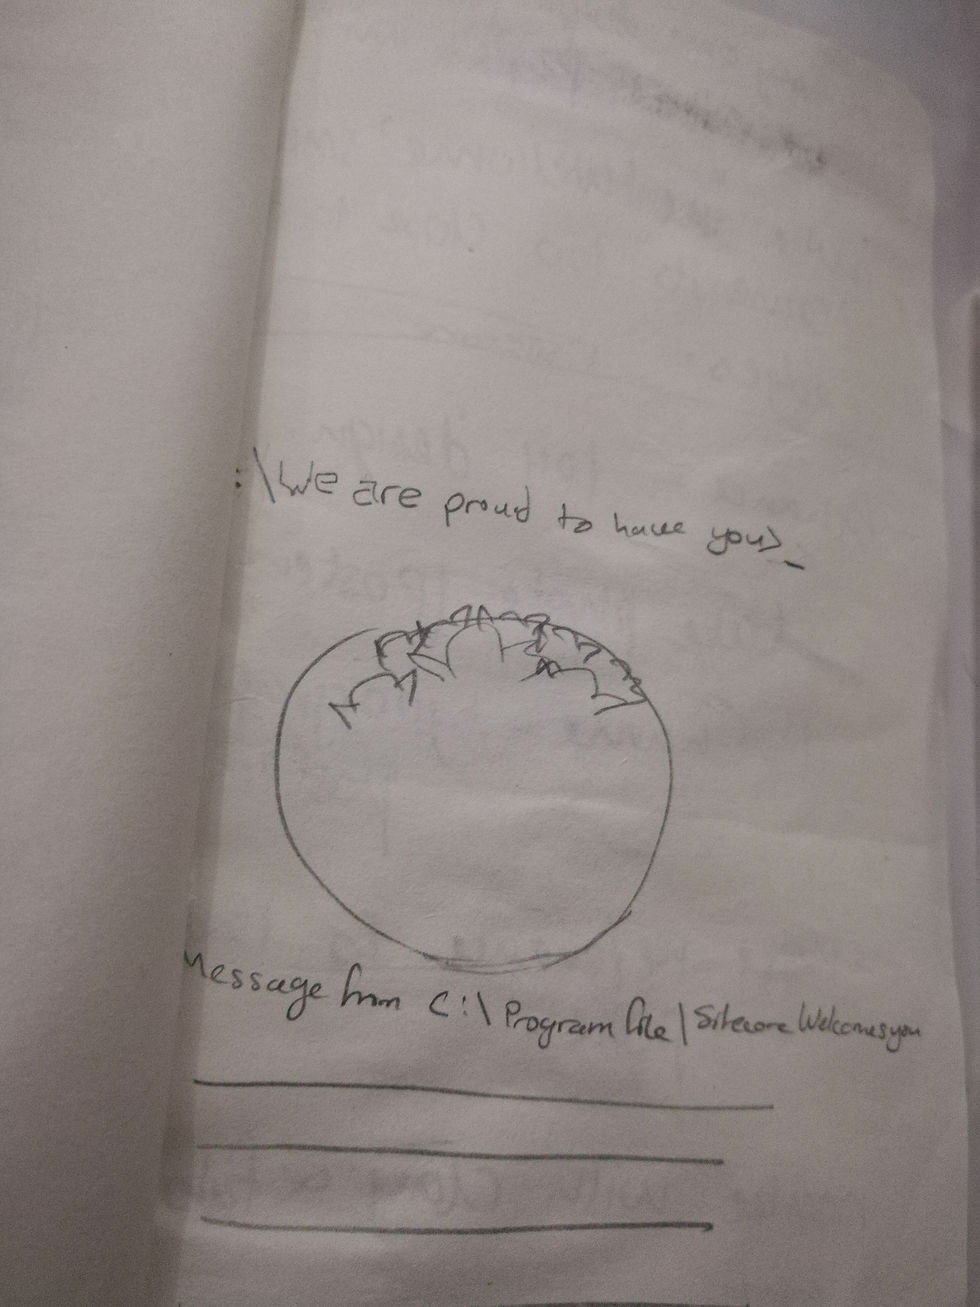 :\We are proud to have you>_
Message from C:\Program file|Sitecore Welcomesyou